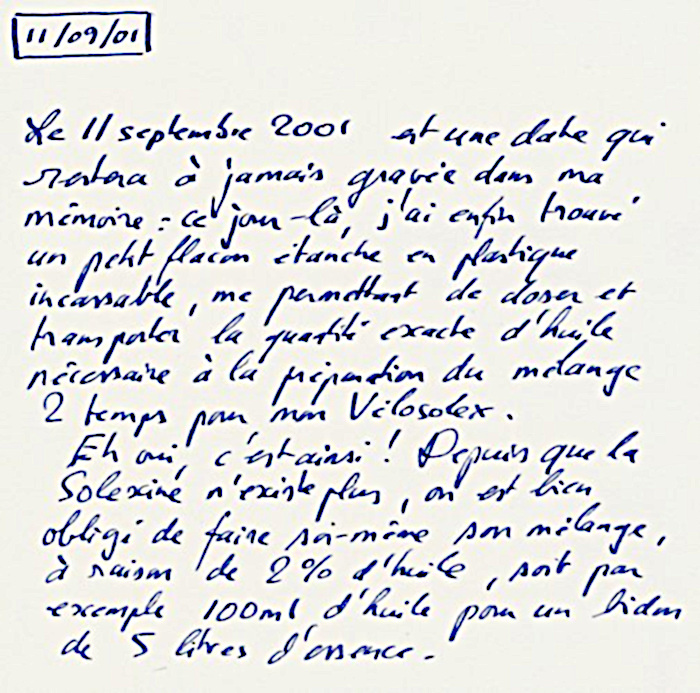 11/09/01
Le 11 septembre 2001 est une date qui
restera à jamais gravée dans ma
mémoire : ce jour-là, j'ai enfin trouvé
un petit flacon étanche en plastique
incassable, me permettant de doser et
transporter la quantité exacte d'huile
nécessaire à la préparation du mélange
2 temps pour mon Vélosolex.
Eh oui, c'est ainsi ! Depuis que la
Solexine n'existe plus, on est bien
obligé de faire soi-même son mélange,
à raison de 2% d'huile, soit par
exemple 100ml d'huile pour un bidon
de 5 litres d'essence.